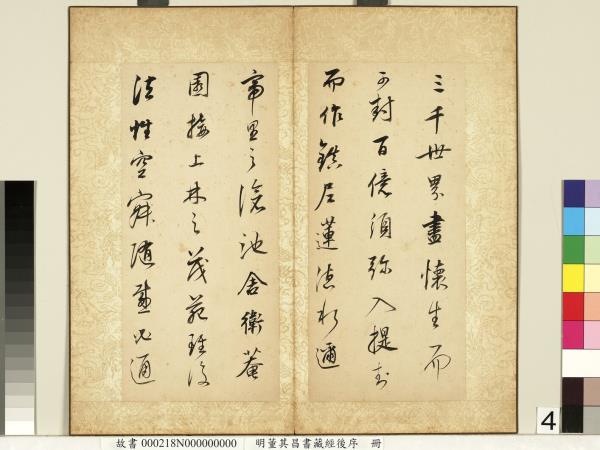 三千世界盡懷生而
可封百億須彌入提封
而作鎮尼蓮德水邇
帝里之滄池舍衛菴
園接上林之茂苑雖復
法性空寂隨感必通
4
故書 000218N000000000 明董其昌書藏經後序 冊